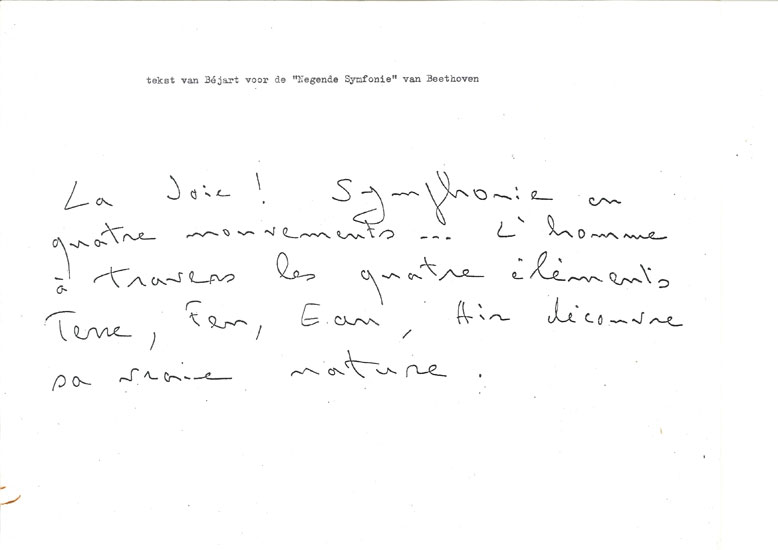 tekst van Béjart voor de "Negende Symfonie" van Beethoven
La Joie ! Symphonie en
quatre mouvements ... L'homme
à travers les quatre éléments
Terre, Feu, Eau, Air découvre
sa vraie nature.